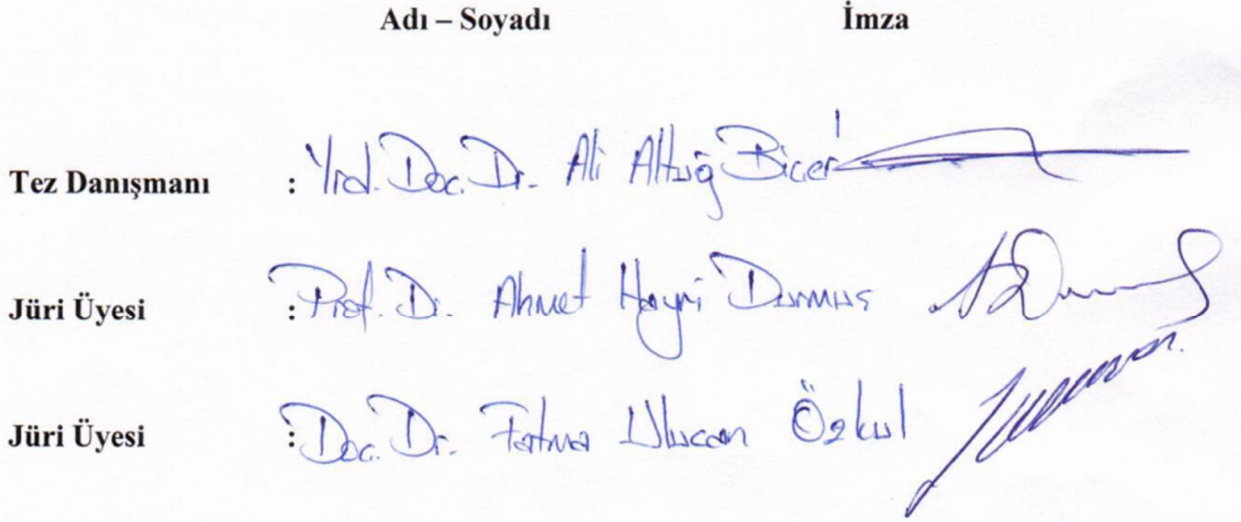 Adı – Soyadı İmza
Tez Danışmanı : Yrd. Doc. Dr. Ali Altuğ Bicer
Jüri Üyesi : Prof. Dr. Ahmet Hayri Durmus
Jüri Üyesi : Doc. Dr. Fatma Ulucan Özkul